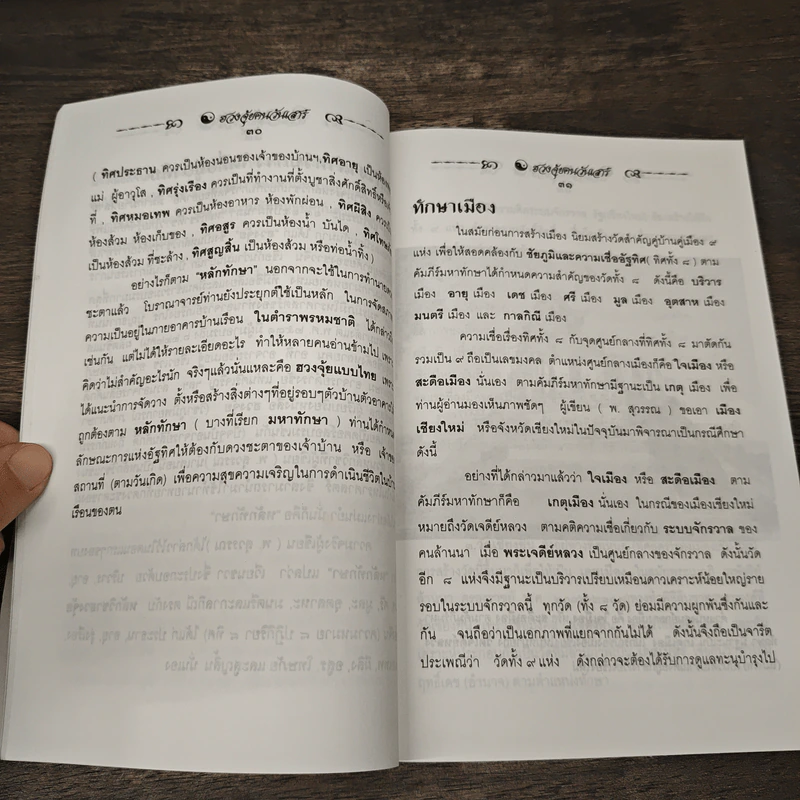 ฮวงจุ้ยคนวันเสาร์
๓๐
( ทิศประธาน ควรเป็นห้องนอนของเจ้าของบ้านฯ,ทิศอายุ เป็นห้อง
แม่ ผู้อาวุโส , ทิศรุ่งเรือง ควรเป็นที่ทำงานที่ตั้งบูชาสิ่งศักดิ์สิทธิ์
ที่ , ทิศหมอเทพ ควรเป็นห้องอาหาร ห้องพักผ่อน , ทิศผีสิง ควร
ห้องส้วม ห้องเก็บของ , ทิศอสูร ควรเป็นห้องน้ำ บันได , ทิศโทษ
เป็นห้องส้วม ที่ชะล้าง , ทิศสูญสิ้น เป็นห้องส้วม หรือท่อน้ำทิ้ง )
อย่างไรก็ตาม "หลักทักษา" นอกจากจะใช้ในการทำนาย
ชะตาแล้ว โบราณาจารย์ท่านยังประยุกต์ใช้เป็นหลัก ในการจัด
ความเป็นอยู่ในภายอาคารบ้านเรือน ในตำราพรหมชาติ ได้กล่าว
เช่นกัน แต่ไม่ได้ให้รายละเอียดอะไร ทำให้หลายคนอ่านข้ามไป เพราะ
คิดว่าไม่สำคัญอะไรนัก จริงๆแล้วนั่นแหละคือ ฮวงจุ้ยแบบไทย เพราะ
ได้แนะนำการจัดวาง ตั้งหรือสร้างสิ่งต่างๆที่อยู่รอบๆตัวบ้านตัวอาคาร
ถูกต้องตาม หลักทักษา ( บางที่เรียก มหาทักษา ) ท่านได้กำหนด
ลักษณะการแห่งอัฐทิศให้ต้องกับดวงชะตาของเจ้าบ้าน หรือ เจ้าของ
สถานที่ (ตามวันเกิด) เพื่อความสุขความเจริญในการดำเนินชีวิตใน
เรือนของตน
ฮวงจุ้ยคนวันเสาร์
๓๑
ทักษาเมือง
ในสมัยก่อนการสร้างเมือง นิยมสร้างวัดสำคัญคู่บ้านคู่เมือง ๙
แห่ง เพื่อให้สอดคล้องกับ ชัยภูมิและความเชื่ออัฐทิศ( ทิศทั้ง ๘ ) ตาม
คัมภีร์มหาทักษาได้กำหนดความสำคัญของวัดทั้ง ๘ ดังนี้คือ บริวาร
เมือง อายุ เมือง เดช เมือง ศรี เมือง มูล เมือง อุตสาห เมือง
มนตรี เมือง และ กาลกิณี เมือง
ความเชื่อเรื่องทิศทั้ง ๘ กับจุดศูนย์กลางที่ทิศทั้ง ๘ มาตัดกัน
รวมเป็น ๙ ถือเป็นเลขมงคล ตำแหน่งศูนย์กลางเมืองก็คือ ใจเมือง หรือ
สะดือเมือง นั่นเอง ตามคัมภีร์มหาทักษามีฐานะเป็น เกตุ เมือง เพื่อ
ท่านผู้อ่านมองเห็นภาพชัดๆ ผู้เขียน ( พ. สุวรรณ ) ขอเอา เมือง
เชียงใหม่ หรือจังหวัดเชียงใหม่ในปัจจุบันมาพิจารณาเป็นกรณีศึกษา
ดังนี้
อย่างที่ได้กล่าวมาแล้วว่า ใจเมือง หรือ สะดือเมือง ตาม
คัมภีร์มหาทักษาก็คือ เกตุเมือง นั่นเอง ในกรณีของเมืองเชียงใหม่
หมายถึงวัดเจดีย์หลวง ตามคติความเชื่อเกี่ยวกับ ระบบจักรวาล ของ
คนล้านนา เมื่อ พระเจดีย์หลวง เป็นศูนย์กลางของจักรวาล ดังนั้นวัด
อีก ๘ แห่งจึงมีฐานะเป็นบริวารเปรียบเหมือนดาวเคราะห์น้อยใหญ่ราย
รอบในระบบจักรวาลนี้ ทุกวัด (ทั้ง ๘ วัด) ย่อมมีความผูกพันซึ่งกันและ
กัน จนถือว่าเป็นเอกภาพที่แยกจากกันไม่ได้ ดังนั้นจึงถือเป็นจารีต
ประเพณีว่า วัดทั้ง ๙ แห่ง ดังกล่าวจะต้องได้รับการดูแลทะนุบำรุงไป